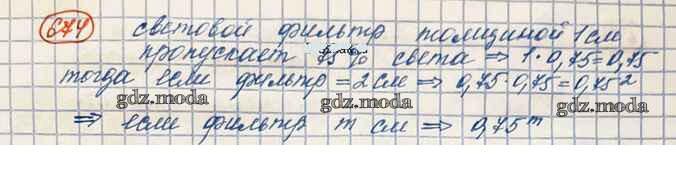 674 световой фильтр толщиной 1 см
пропускает 75% света ⇒ 1·0,75=0,75
тогда если фильтр = 2 см ⇒ 0,75·0,75=0,75²
gdz.moda gdz.moda
⇒ если фильтр m см ⇒ 0,75ᵐ
gdz.moda gdz.moda